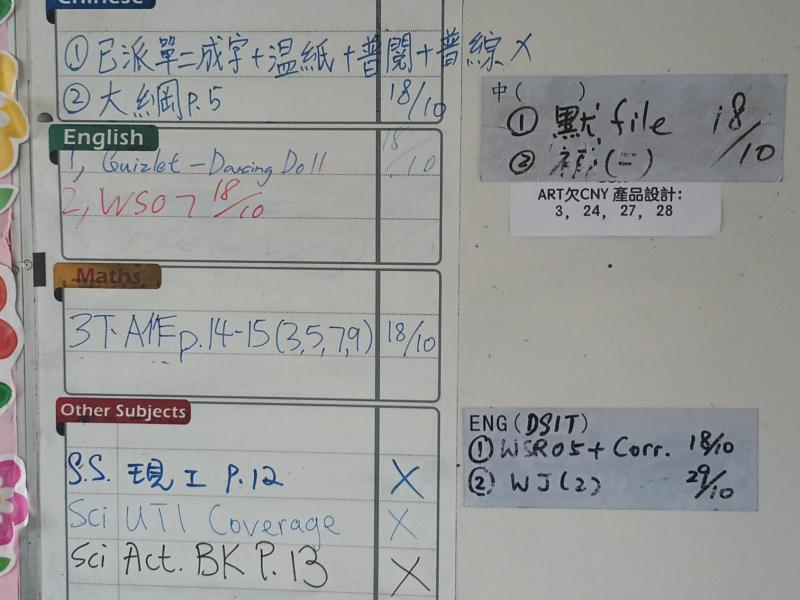 Chinese
① 已派單二成字+温紙+普閱+普線 X
② 大綱 P.5 18/10
English
1, Quizlet - Dancing Doll 18/10
2, WS07 18/10
Maths
3下 A作 p.14-15 (3,5,7,9) 18/10
Other Subjects
S.S. 現工 P.12 X
Sci UT1 Coverage X
Sci Act. BK P.13 X
中( )
① 默 file 18/10
② (二)
ART欠CNY 產品設計:
3, 24, 27, 28
ENG(DSIT)
① WSR05 + Corr. 18/10
② WJ(2) 29/10